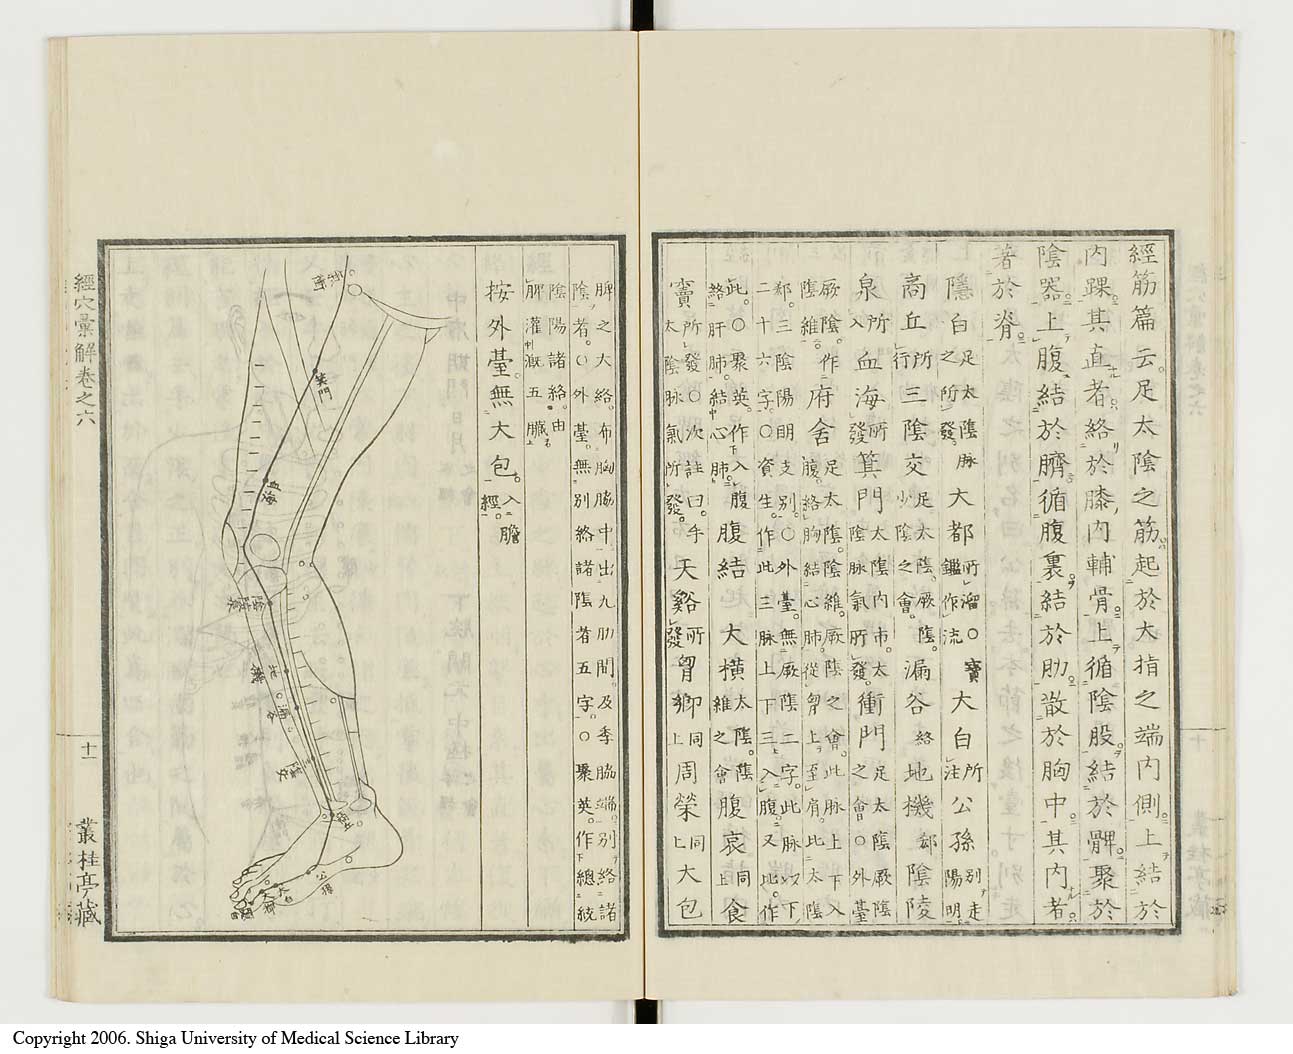 經筋篇云足太陰之筋起於大指之端内側上結於
内踝其直者絡於膝内輔骨上循陰股結於髀聚於
陰器上腹結於臍循腹裏結於肋散於胸中其内者
著於脊
隱白足太陰脉之所發大都所溜○寶鑑作流大白所注公孫別走陽明
商丘所行三陰交足太陰厥陰少陰之會漏谷絡地機郄陰陵
泉所入血海所發箕門太陰内市太陰脉氣所發衝門足太陰厥陰之會○外臺
厥陰作陰維府舍足太陰陰維厥陰之會此脉上下入腹絡胸結心肺從脅上至肩比太陰
郄三陰陽明支別○外臺無厥陰二字此脉以下二十六字○資生作此三脉上下三入腹又地作
此○聚英作下入腹絡肝肺結心肺腹結大横太陰陰維之會腹哀同上食
竇所發○次註曰手太陰脉氣所發天谿所發胷郷同上周榮同上大包
脾之大絡布胸脇中出九肋間及季脇端別絡諸
陰者○外臺無別絡諸陰者五字○聚英作總統
陰陽諸絡由
脾灌漑五臟
按外臺無大包入膽經
衝
箕門
血海
陰陵
地機
漏谷
陰交
商丘
公孫
太白
大都
隱白
經穴彙解卷之六
十一
叢桂亭藏
Copyright 2006. Shiga University of Medical Science Library